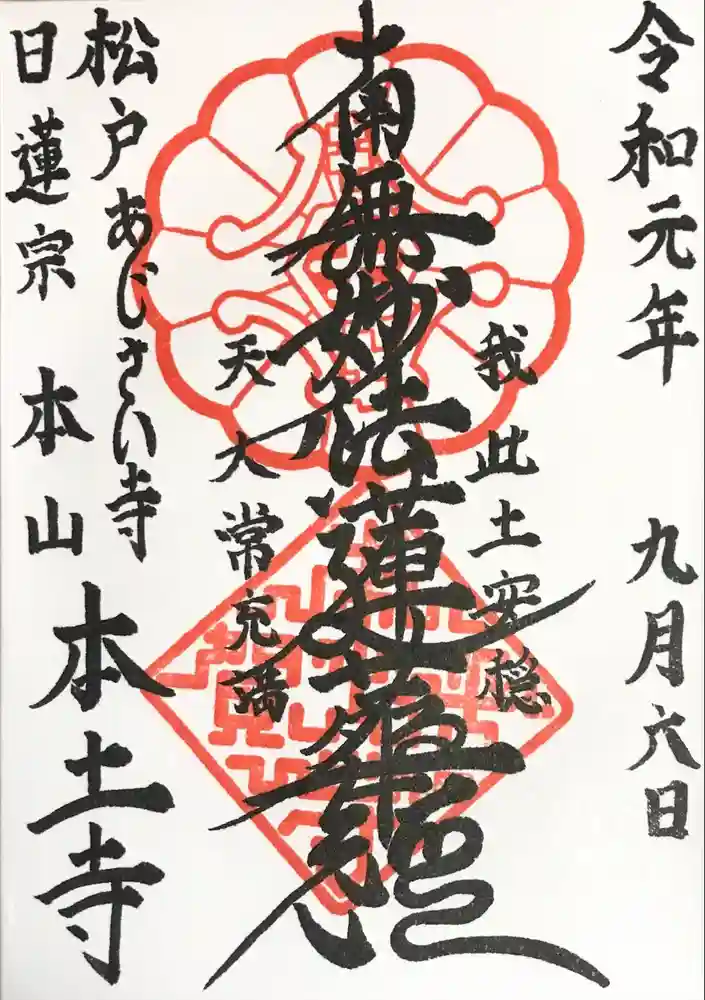 令和元年 九月六日
我此土安穏
南無妙法蓮華経
天人常充満
松戸あじさい寺
日蓮宗 本山
本土寺